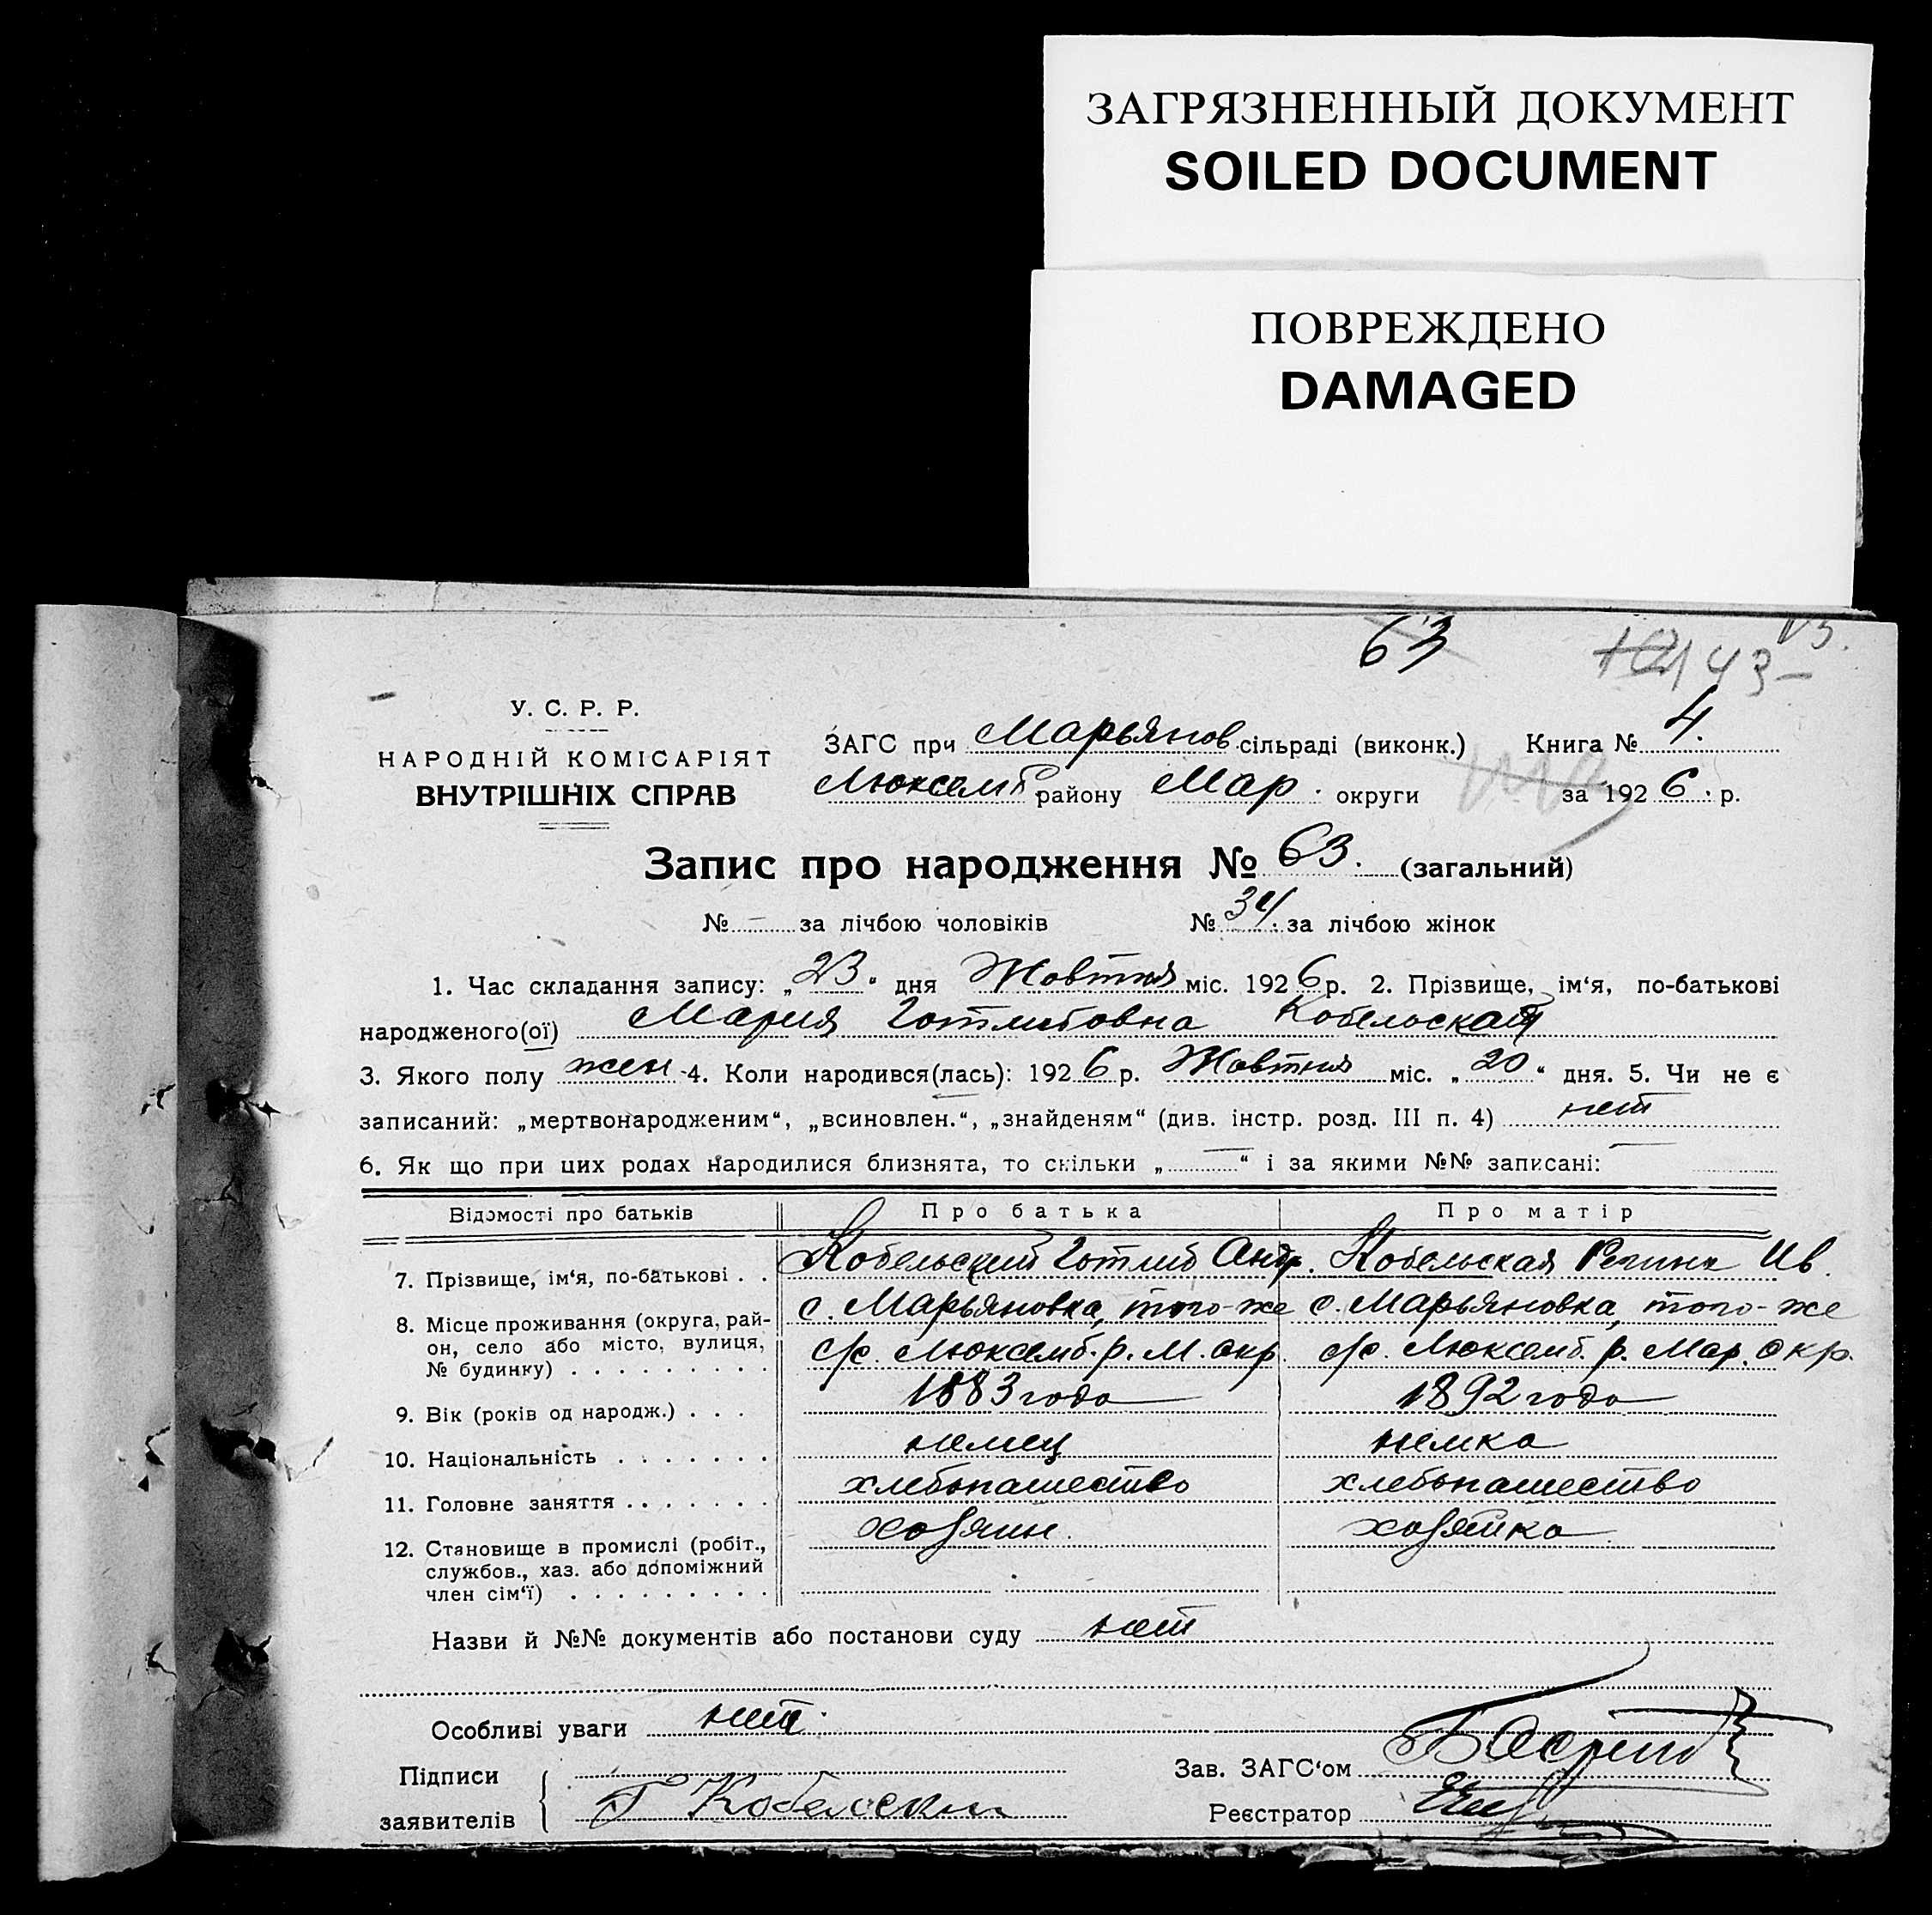 ЗАГРЯЗНЕННЫЙ ДОКУМЕНТ
SOILED DOCUMENT
ПОВРЕЖДЕНО
DAMAGED
63
143
У. С. Р. Р.
НАРОДНІЙ КОМІСАРІЯТ
ВНУТРІШНІХ СПРАВ
ЗАГС при Марьянов сільраді (виконк.) Книга № 4.
Люксемб району Мар. округи за 1926. р.
Запис про народження № 63. (загальний)
№ — за лічбою чоловіків № 34. за лічбою жінок
1. Час складання запису: „23" дня Жовтня міс. 1926 р. 2. Прізвище, ім'я, по-батькові
народженого(ої) Мария Готлибовна Кобельская
3. Якого полу жен 4. Коли народився(лась): 1926 р. Жовтня міс. „20" дня. 5. Чи не є
записаний: „мертвонародженим", „всиновлен.", „знайденям" (див. інстр. розд. III п. 4) нет
6. Як що при цих родах народилися близнята, то скільки „—" і за якими №№ записані: —
Відомості про батьків Про батька Про матір
7. Прізвище, ім'я, по-батькові . . Кобельский Готлиб Андр. Кобельская Регина Ив.
8. Місце проживання (округа, рай-он, село або місто, вулиця, № будинку) . . . . . . . . . с. Марьяновка, того-же с/с. Люксемб. р. М. окр. с. Марьяновка, того-же с/с. Люксемб. р. Мар. окр.
9. Вік (років од народж.) . . . 1883 года 1892 года
10. Національність . . . . . . . немец немка
11. Головне заняття . . . . . . . хлебопашество хлебопашество
12. Становище в промислі (робіт., службов., хаз. або допоміжний член сім'ї) . . . . . . . . . хозяин. хозяйка
Назви й №№ документів або постанови суду нет
Особливі уваги нет.
Підписи
заявителів Г Кобельски
Зав. ЗАГС'ом
Реєстратор